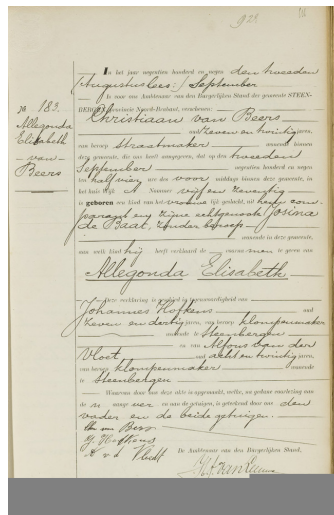 928
№ 183.
Allegonda
Elisabeth
van
Beers
In het jaar negentien honderd en negen den tweeden
(Augustus lees:) September
is voor ons Ambtenaar van den Burgerlijken Stand der gemeente STEEN-
BERGEN, Provincie Noord-Brabant, verschenen:
Christiaan van Beers
oud zeven en twintig jaren,
van beroep straatmaker wonende binnen
deze gemeente, die ons heeft aangegeven, dat op den tweeden
September negentien honderd en negen
ten half vier ure des voor middags binnen deze gemeente, in
het huis Wijk A Nummer vijf en zeventig
is geboren een kind van het vrouwelijk geslacht, uit hem com-
parant en zijne echtgenoote Josina
de Baat, zonder beroep
wonende in deze gemeente,
aan welk kind hij heeft verklaard de voornamen te geven van
Allegonda Elisabeth
Deze verklaring is geschied in tegenwoordigheid van
Johannes Hofkens oud
zeven en dertig jaren, van beroep klompenmaker
wonende te Steenbergen
en van Alfons van der
Vloet oud acht en twintig jaren,
van beroep klompenmaker wonende
te Steenbergen
Waarvan door ons deze akte is opgemaakt, welke, na gedane voorlezing aan
den aangever en aan de getuigen, is geteekend door ons den
vader en de beide getuigen.
Beers
J. Hofkens
A v d Vlucht
De Ambtenaar van den Burgerlijken Stand,